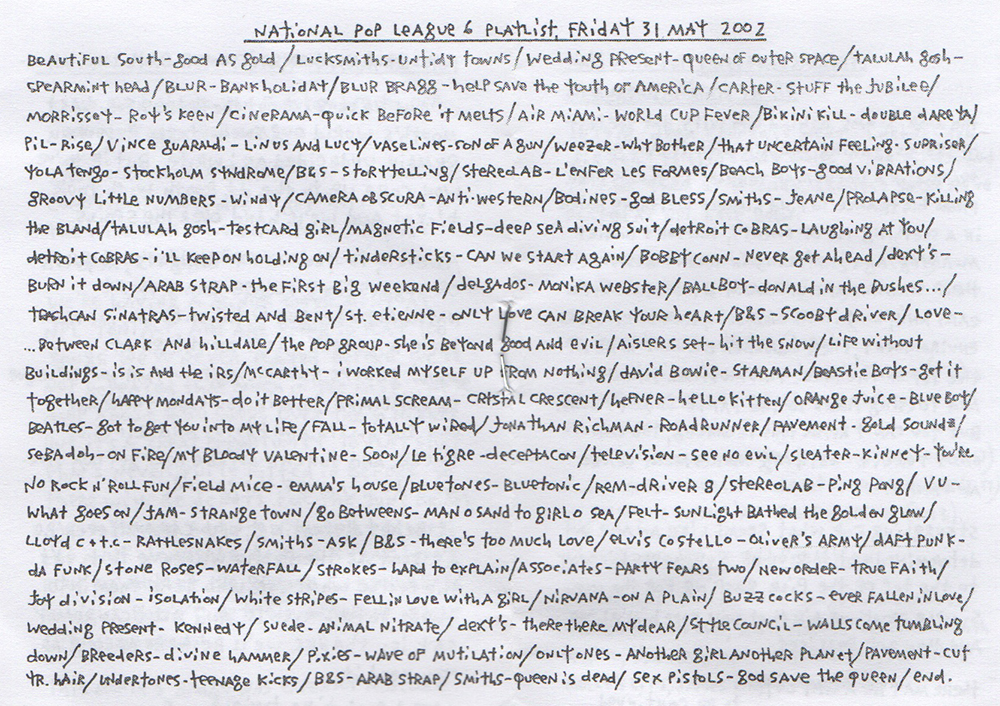 NATIONAL POP LEAGUE 6 PLAYLIST, FRIDAY 31 MAY 2002
BEAUTIFUL SOUTH-GOOD AS GOLD/LUCKSMITHS-UNTIDY TOWNS/WEDDING PRESENT-QUEEN OF OUTER SPACE/TALULAH GOSH-
SPEARMINT HEAD/BLUR-BANKHOLIDAY/BLUR BRAGG-HELP SAVE THE YOUTH OF AMERICA/CARTER-STUFF THE JUBILEE/
MORRISSEY-ROY'S KEEN/CINERAMA-QUICK BEFORE IT MELTS/AIR MIAMI-WORLD CUP FEVER/BIKINI KILL-DOUBLE DARE YA/
PIL-RISE/VINCE GUARALDI-LINUS AND LUCY/VASELINES-SON OF A GUN/WEEZER-WHY BOTHER/THAT UNCERTAIN FEELING-SUPRISER/
YO LA TENGO-STOCKHOLM SYNDROME/B&S-STORYTELLING/STEREOLAB-L'ENFER LES FORMES/BEACH BOYS-GOOD VIBRATIONS/
GROOVY LITTLE NUMBERS-WINDY/CAMERA OBSCURA-ANTI-WESTERN/BODINES-GOD BLESS/SMITHS-JEANE/PROLAPSE-KILLING
THE BLAND/TALULAH GOSH-TESTCARD GIRL/MAGNETIC FIELDS-DEEP SEA DIVING SUIT/DETROIT COBRAS-LAUGHING AT YOU/
DETROIT COBRAS-I'LL KEEP ON HOLDING ON/TINDERSTICKS-CAN WE START AGAIN/BOBBY CONN-NEVER GET AHEAD/DEXY'S-
BURN IT DOWN/ARAB STRAP-THE FIRST BIG WEEKEND/DELGADOS-MONIKA WEBSTER/BALLBOY-DONALD IN THE BUSHES.../
TRASHCAN SINATRAS-TWISTED AND BENT/ST. ETIENNE-ONLY LOVE CAN BREAK YOUR HEART/B&S-SCOOBY DRIVER/LOVE-
...BETWEEN CLARK AND HILLDALE/THE POP GROUP-SHE IS BEYOND GOOD AND EVIL/AISLERS SET-HIT THE SNOW/LIFE WITHOUT
BUILDINGS-IS IS AND THE IRS/MCCARTHY-I WORKED MYSELF UP FROM NOTHING/DAVID BOWIE-STARMAN/BEASTIE BOYS-GET IT
TOGETHER/HAPPY MONDAYS-DO IT BETTER/PRIMAL SCREAM-CRYSTAL CRESCENT/HEFNER-HELLO KITTEN/ORANGE JUICE-BLUE BOY/
BEATLES-GOT TO GET YOU INTO MY LIFE/FALL-TOTALLY WIRED/JONATHAN RICHMAN-ROADRUNNER/PAVEMENT-GOLD SOUNDZ/
SEBADOH-ON FIRE/MY BLOODY VALENTINE-SOON/LE TIGRE-DECEPTACON/TELEVISION-SEE NO EVIL/SLEATER-KINNEY-YOU'RE
NO ROCK N' ROLL FUN/FIELD MICE-EMMA'S HOUSE/BLUETONES-BLUETONIC/REM-DRIVER 8/STEREOLAB-PING PONG/VU-
WHAT GOES ON/JAM-STRANGE TOWN/GO BETWEENS-MAN O SAND TO GIRL O SEA/FELT-SUNLIGHT BATHED THE GOLDEN GLOW/
LLOYD C.+T.C-RATTLESNAKES/SMITHS-ASK/B&S-THERE'S TOO MUCH LOVE/ELVIS COSTELLO-OLIVER'S ARMY/DAFT PUNK-
DA FUNK/STONE ROSES-WATERFALL/STROKES-HARD TO EXPLAIN/ASSOCIATES-PARTY FEARS TWO/NEW ORDER-TRUE FAITH/
JOY DIVISION-ISOLATION/WHITE STRIPES-FELL IN LOVE WITH A GIRL/NIRVANA-ON A PLAIN/BUZZCOCKS-EVER FALLEN IN LOVE/
WEDDING PRESENT-KENNEDY/SUEDE-ANIMAL NITRATE/DEXY'S-THERE THERE MY DEAR/STYLE COUNCIL-WALLS COME TUMBLING
DOWN/BREEDERS-DIVINE HAMMER/PIXIES-WAVE OF MUTILATION/ONLY ONES-ANOTHER GIRL ANOTHER PLANET/PAVEMENT-CUT
YR. HAIR/UNDERTONES-TEENAGE KICKS/B&S-ARAB STRAP/SMITHS-QUEEN IS DEAD/SEX PISTOLS-GOD SAVE THE QUEEN/END.